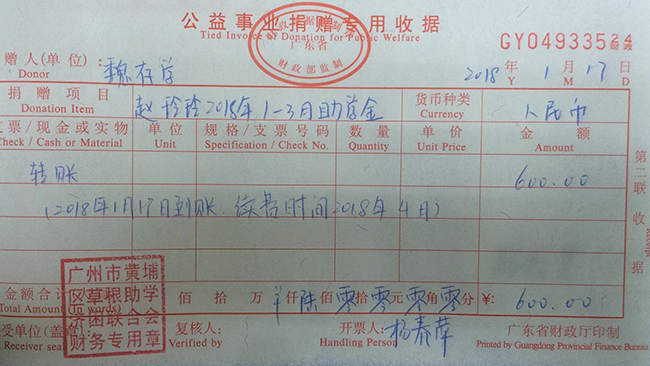 公益事业捐赠专用收据
Tied Invoice of Donation for Public Welfare
广东省
财政部监制
GY04933524
赠人(单位):
Donor
2018年 1月 17日
Y M D
捐赠项目 赵玲玲2018年1-3月助学金 货币种类 人民币
Donation Item Currency
支票/现金或实物 单位 规格/支票号码 数量 单价 金额
Check / Cash or Material Unit Specification / Check No. Quantity Unit Price Amount
转账 600.00
(2018年1月17日到账.续费时间2018年4月)
金额合计 佰拾万 仟陆佰零拾零元零角零分 ¥: 600.00
Total Amount (In words)
广州市黄埔
区草根助学
济困联合会
财务专用章
受单位(盖章) 复核人: 开票人: 杨春萍 广东省财政厅印制
Receiver seal Verified by Handling Person Printed by Guangdong Provincial Finance Bureau
第二联收据